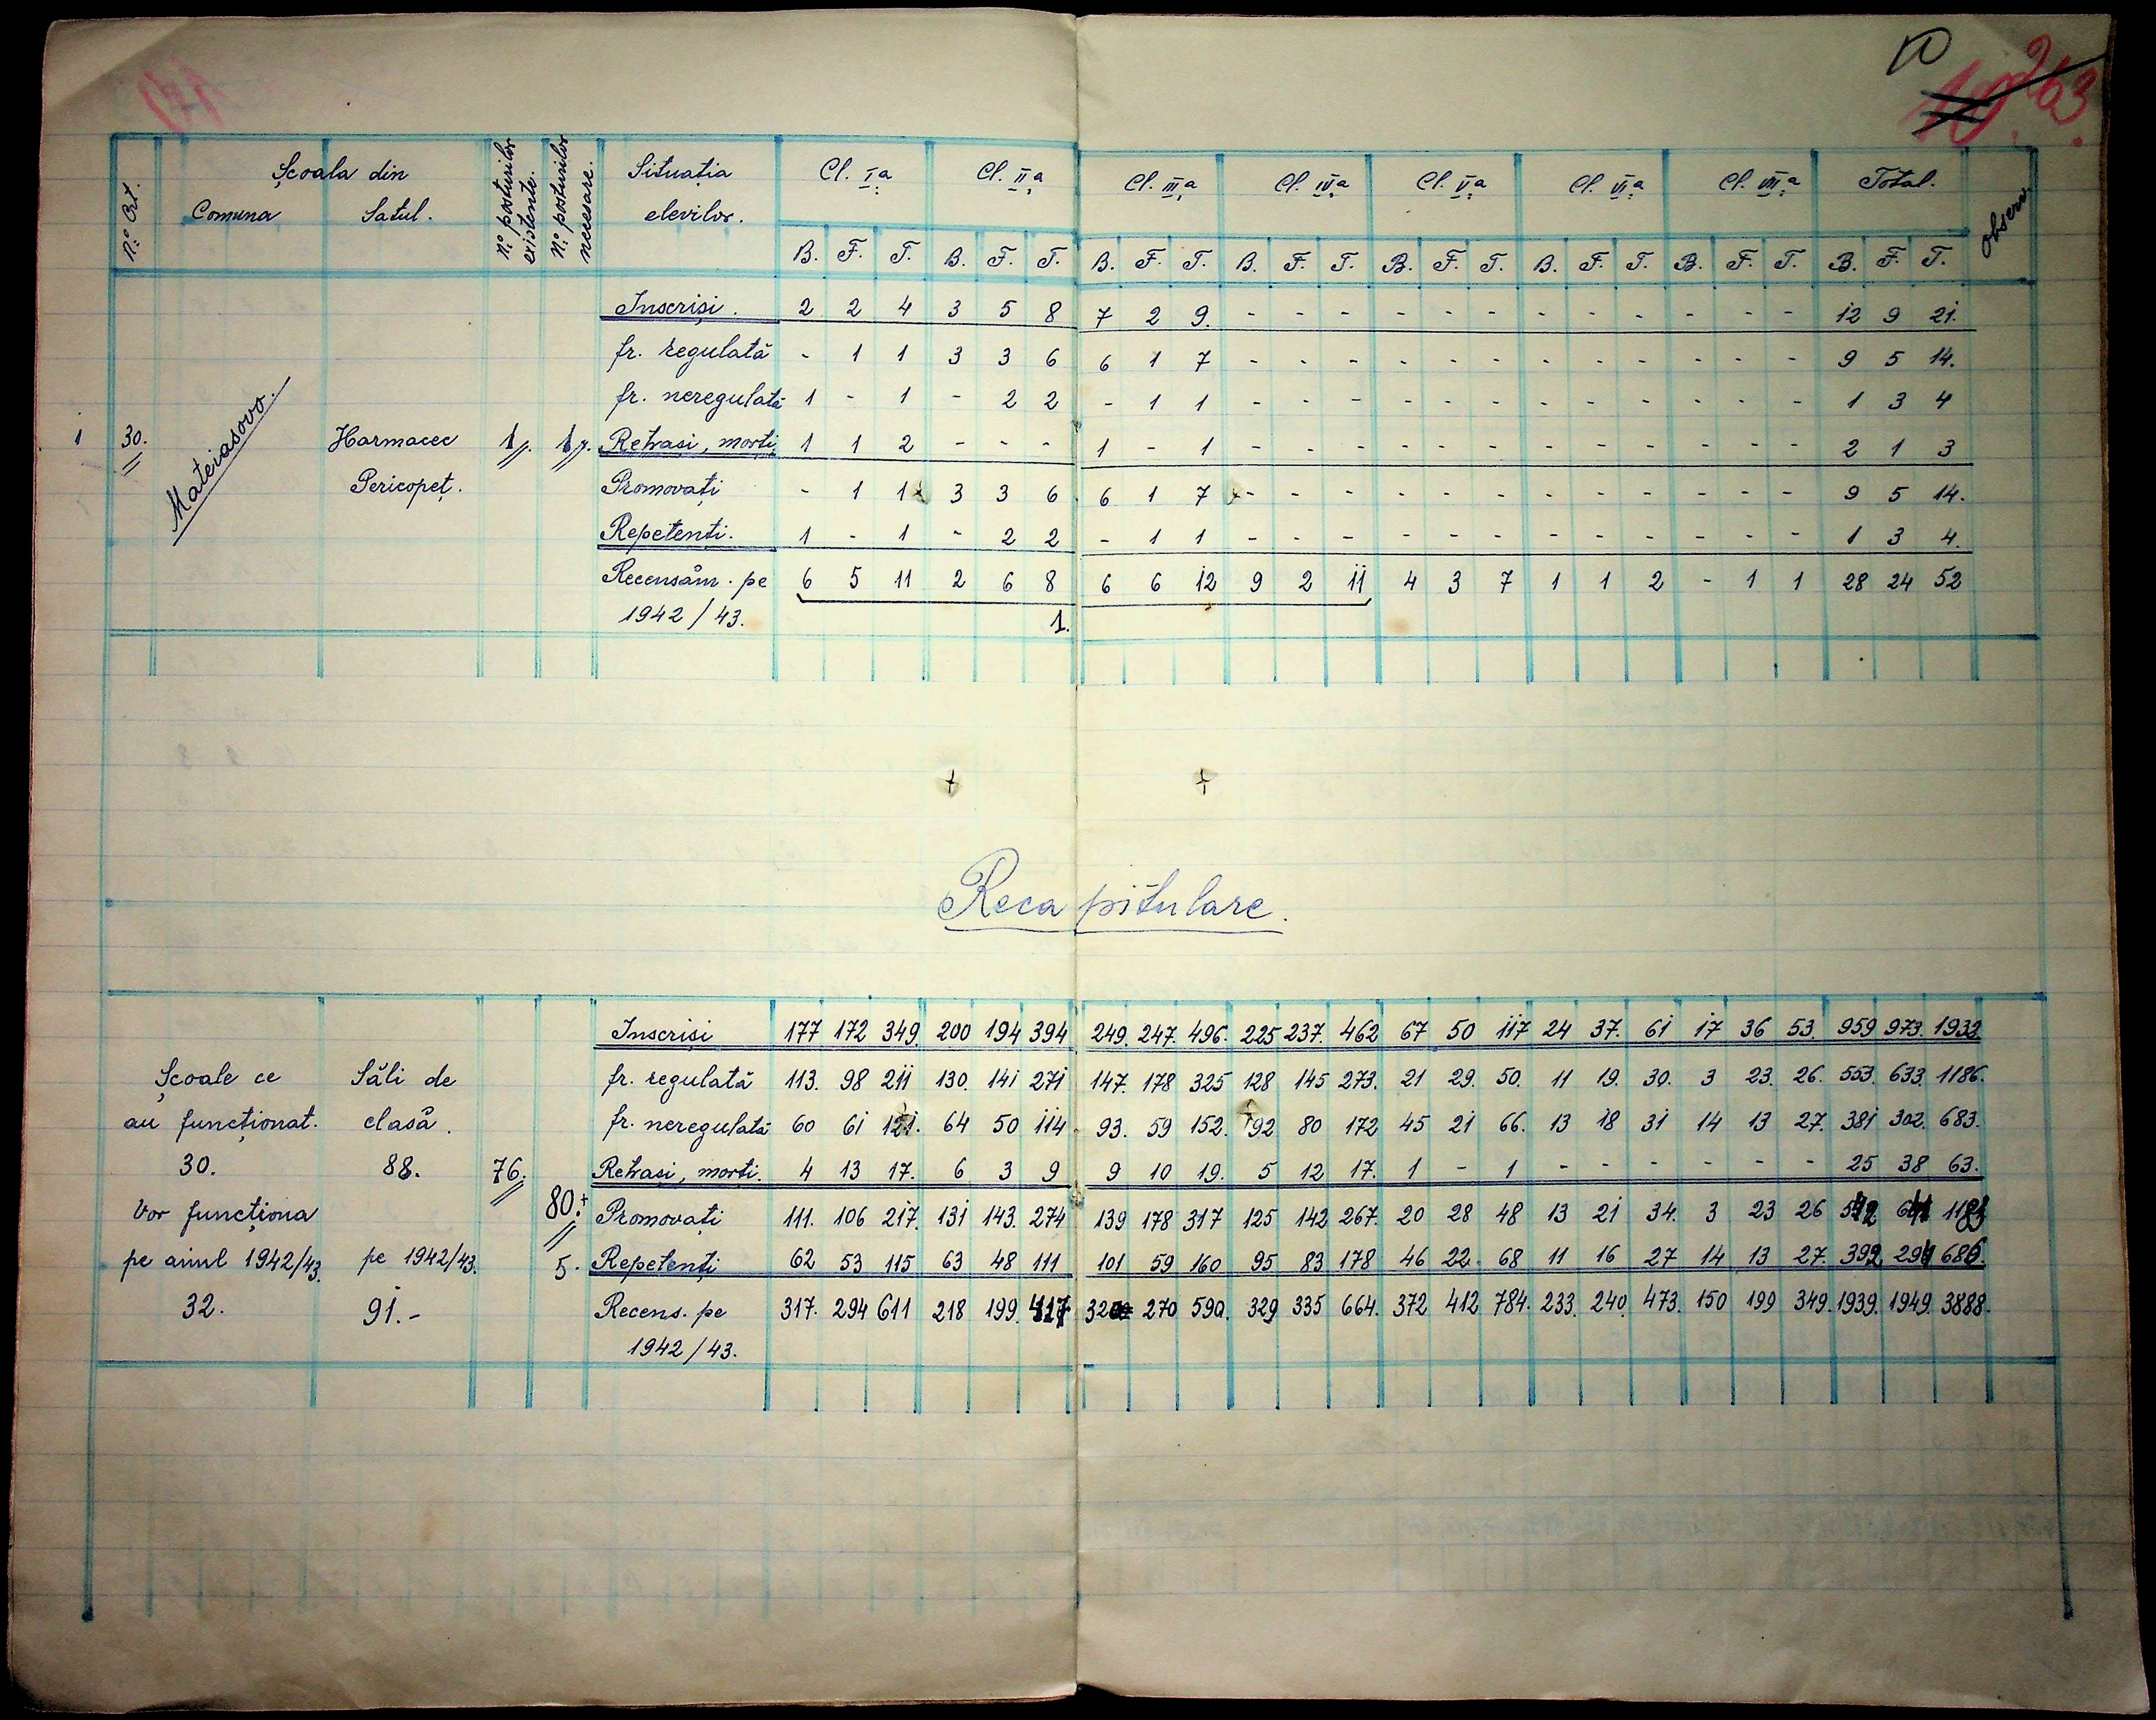 10
263.
N° Crt. Școala din N° posturilor existente. N° posturilor necesare. Situația elevilor. Cl. I-a Cl. II-a Cl. III-a Cl. IV-a Cl. V-a Cl. VI-a Cl. VII-a Total. Observ.
Comuna Satul.
B. F. T. B. F. T. B. F. T. B. F. T. B. F. T. B. F. T. B. F. T. B. F. T.
Inscriși. 2 2 4 3 5 8 7 2 9. - - - - - - - - - - - - 12 9 21.
fr. regulată - 1 1 3 3 6 6 1 7 - - - - - - - - - - - - 9 5 14.
fr. neregulată 1 - 1 - 2 2 - 1 1 - - - - - - - - - - - - 1 3 4
1 30. Mateiasovo. Harmacec 1 p. 1 p. Retrasi, morți 1 1 2 - - - 1 - 1 - - - - - - - - - - - - 2 1 3
Pericopeț. Promovați - 1 1 3 3 6 6 1 7 - - - - - - - - - - - - 9 5 14.
Repetenți. 1 - 1 - 2 2 - 1 1 - - - - - - - - - - - - 1 3 4.
Recensăm. pe 6 5 11 2 6 8 6 6 12 9 2 11 4 3 7 1 1 2 - 1 1 28 24 52
1942/43. 1.
Recapitulare.
Inscriși 177 172 349. 200 194 394 249. 247. 496. 225 237. 462 67 50 117 24 37. 61 17 36 53. 959 973. 1932
Școale ce Săli de fr. regulată 113. 98 211 130. 141 271 147. 178 325 128 145 273. 21 29. 50. 11 19. 30. 3 23. 26. 553. 633. 1186.
au funcționat. clasă. fr. neregulată 60 61 121. 64 50 114 93. 59 152. 92 80 172 45 21 66. 13 18 31 14 13 27. 381 302. 683.
30. 88. 76. Retrasi, morți. 4 13 17. 6 3 9 9 10 19. 5 12 17. 1 - 1 - - - - - - 25 38 63.
Vor funcționa 80.+ Promovați 111. 106 217. 131 143. 274 139 178 317 125 142 267. 20 28 48 13 21 34. 3 23 26 542 641 1183
pe anul 1942/43. pe 1942/43. 5. Repetenți 62 53 115 63 48 111 101 59 160 95 83 178 46 22. 68 11 16 27 14 13 27. 392 294 686.
32. 91.- Recens. pe 317. 294 611 218 199. 417 320 270 590. 329 335 664. 372 412 784. 233. 240. 473. 150 199 349. 1939. 1949. 3888.
1942/43.